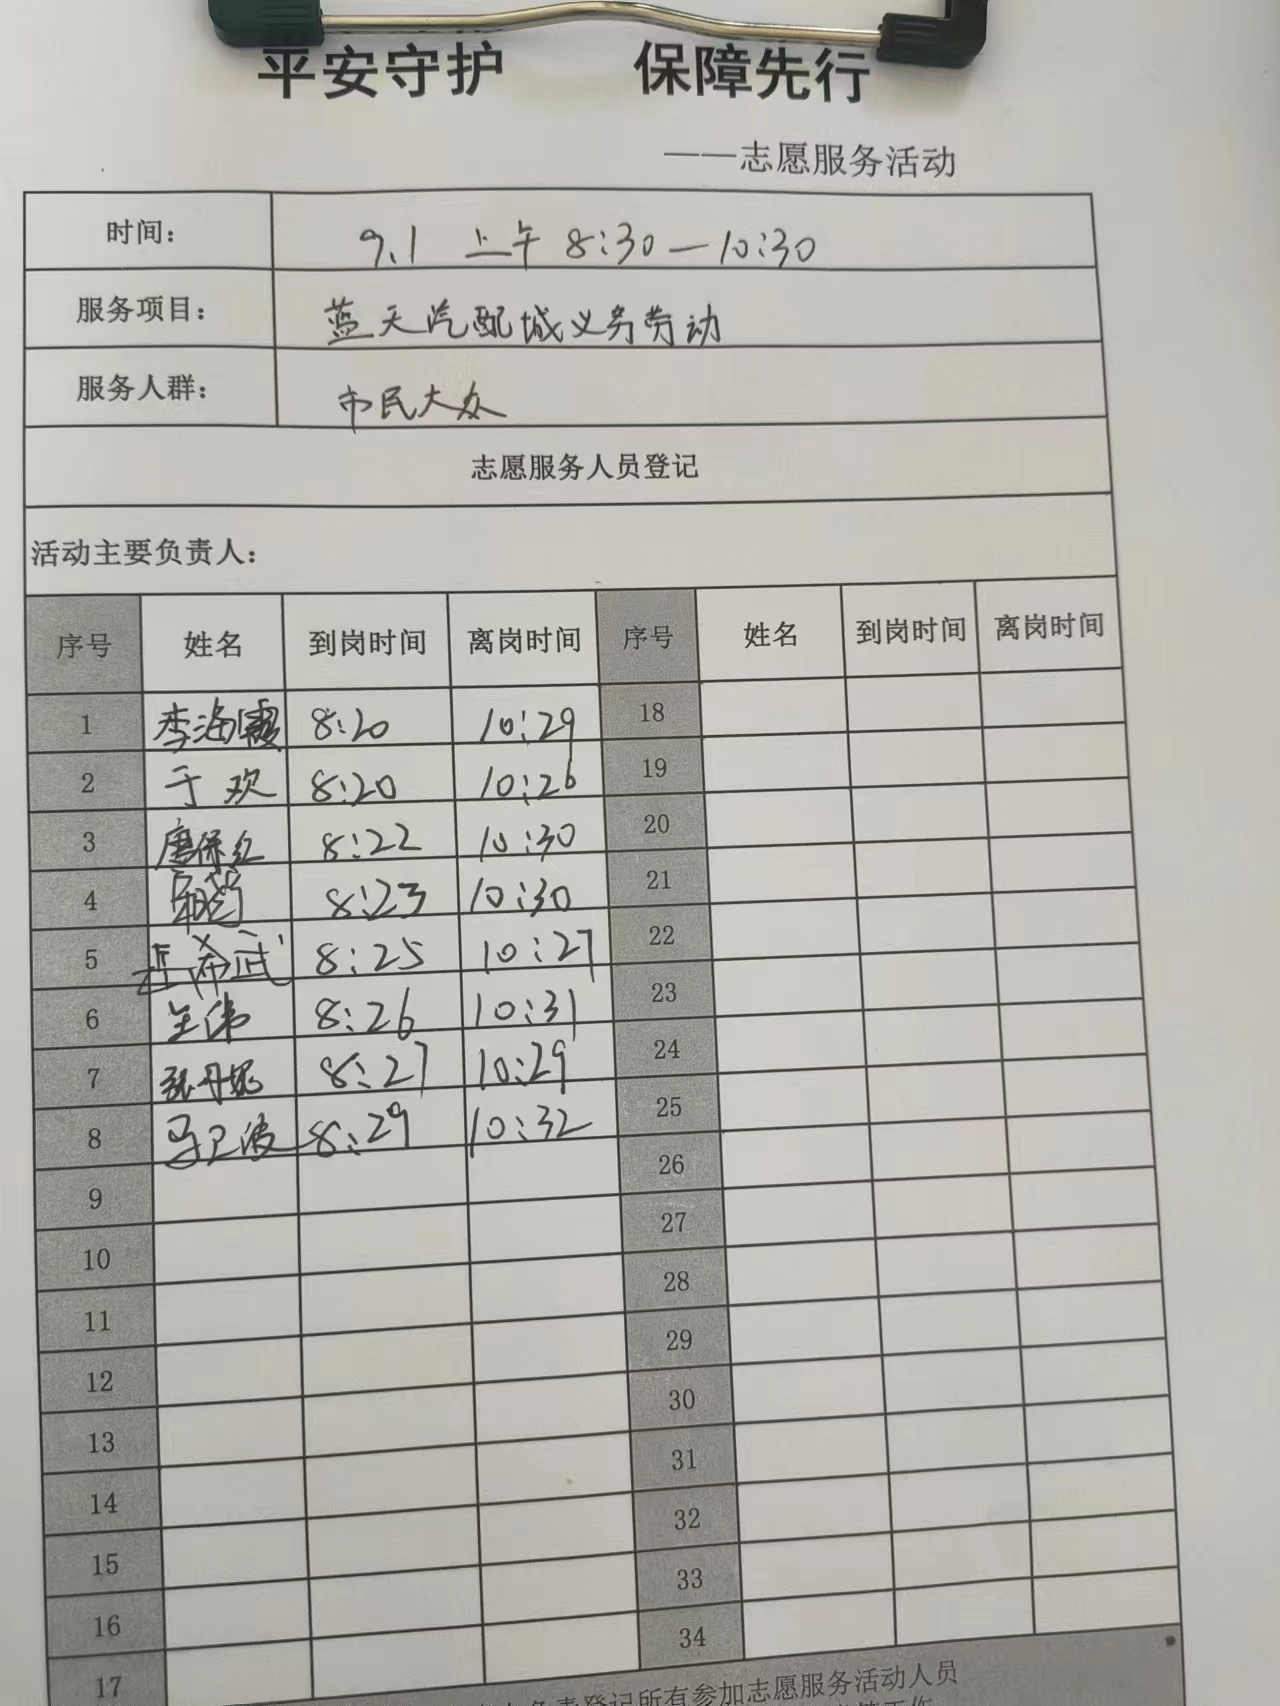 平安守护 保障先行
——志愿服务活动
时间： 9.1 上午 8:30—10:30
服务项目： 蓝天汽配城义务劳动
服务人群： 市民大众
志愿服务人员登记
活动主要负责人：
序号 姓名 到岗时间 离岗时间 序号 姓名 到岗时间 离岗时间
1 李海霞 8:20 10:29 18
2 于欢 8:20 10:26 19
3 唐保红 8:22 10:30 20
4 8:23 10:30 21
5 8:25 10:27 22
6 王伟 8:26 10:31 23
7 张丹妮 8:27 10:29 24
8 马卫波 8:29 10:32 25
9 26
10 27
11 28
12 29
13 30
14 31
15 32
16 33
17 34
负责登记所有参加志愿服务活动人员